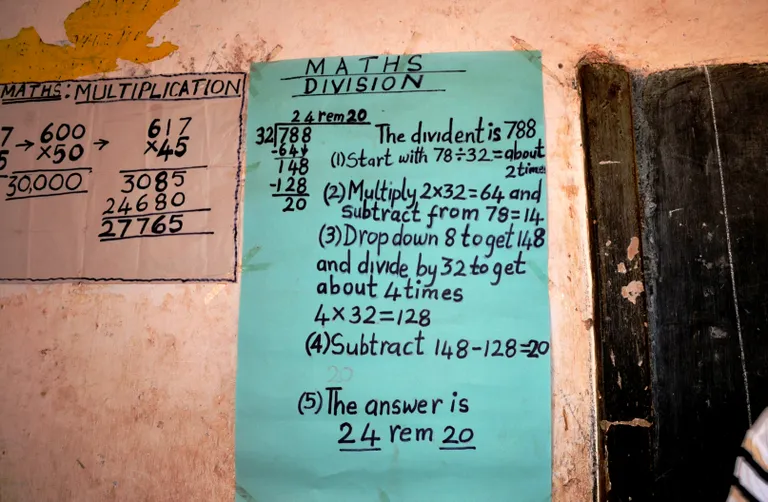 MATHS: MULTIPLICATION
7 → 600 → 617
5 ×50 ×45
30,000 3085
24680
27765
MATHS
DIVISION
24 rem 20
32 788
-64↓
148
-128
20
The divident is 788
(1) Start with 78÷32=about
2 times
(2) Multiply 2×32=64 and
subtract from 78=14
(3) Drop down 8 to get 148
and divide by 32 to get
about 4 times
4×32=128
(4) Subtract 148-128=20
20
(5) The answer is
24 rem 20